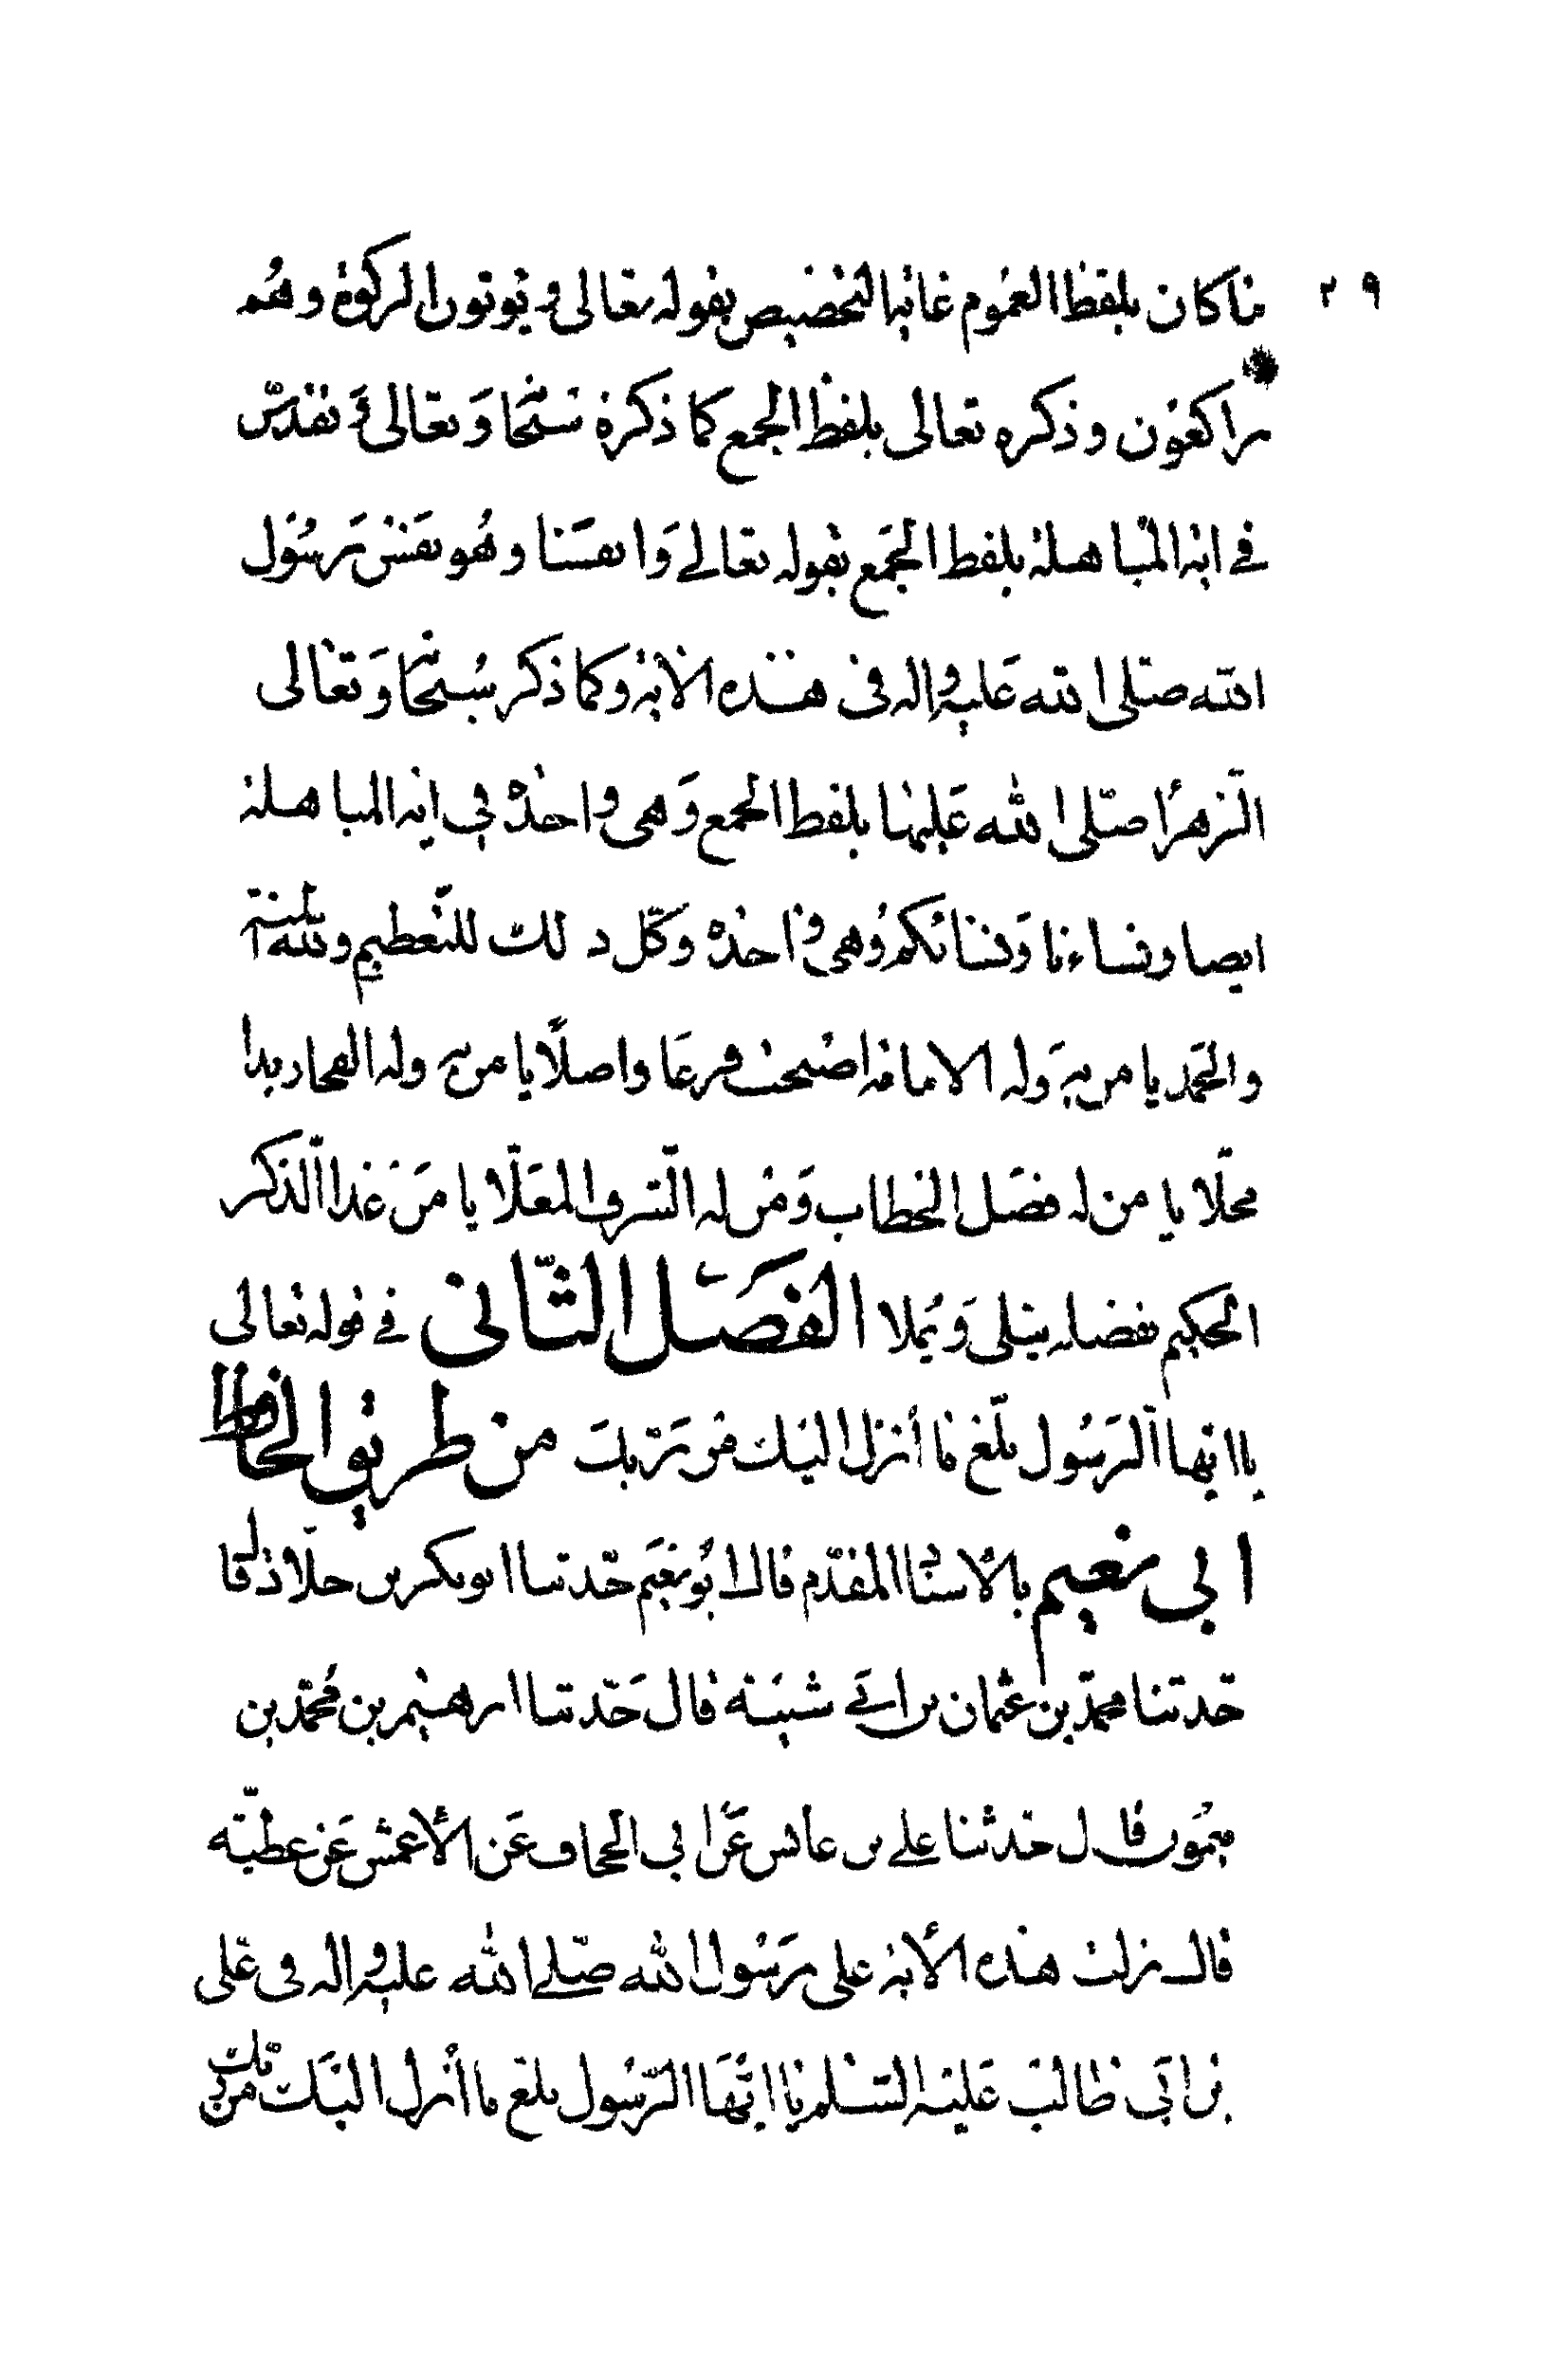 ٢٩
ما كان بلفظ العموم غايه التخصيص بقوله تعالى ويوتون الزكوة وهم
راكعون وذكره تعالى بلفظ الجمع كما ذكره سبحانه وتعالى وتقدس
في ايه المباهله بلفظ الجمع بقوله تعالى وانفسنا وهو نفس رسول
الله صلى الله عليه واله في هذه الايه وكما ذكر سبحانه وتعالى
الزهرا صلى الله عليها بلفظ الجمع وهي واحدة في ايه المباهله
ايضا ونساءنا ونسائكم وهي واحدة وكل ذلك للتعظيم ولله المنة
والحمد يا من به وله الامامة اضحت فرعا واصلا يا من به وله الفخار بدا
محلا يا من له فصل الخطاب ومن له الشرف المعلا يا من غدا الذكر
الحكيم بفضله يتلى ويملا الفصل الثاني في قوله تعالى
يا ايها الرسول بلغ ما أنزل اليك من ربك من طريق الحافظ
ابي نعيم بالاسناد المقدم قال ابو نعيم حدثنا ابو بكر بن خلاد قال
حدثنا محمد بن عثمان بن ابي شيبة قال حدثنا ابرهيم بن محمد بن
ميمون قال حدثنا علي بن عابس عن ابي الجحاف عن الأعمش عن عطيه
قال نزلت هذه الأيه على رسول الله صلى الله عليه واله في علي
بن ابي طالب عليه السلم يا ايها الرسول بلغ ما أنزل اليك من ربك